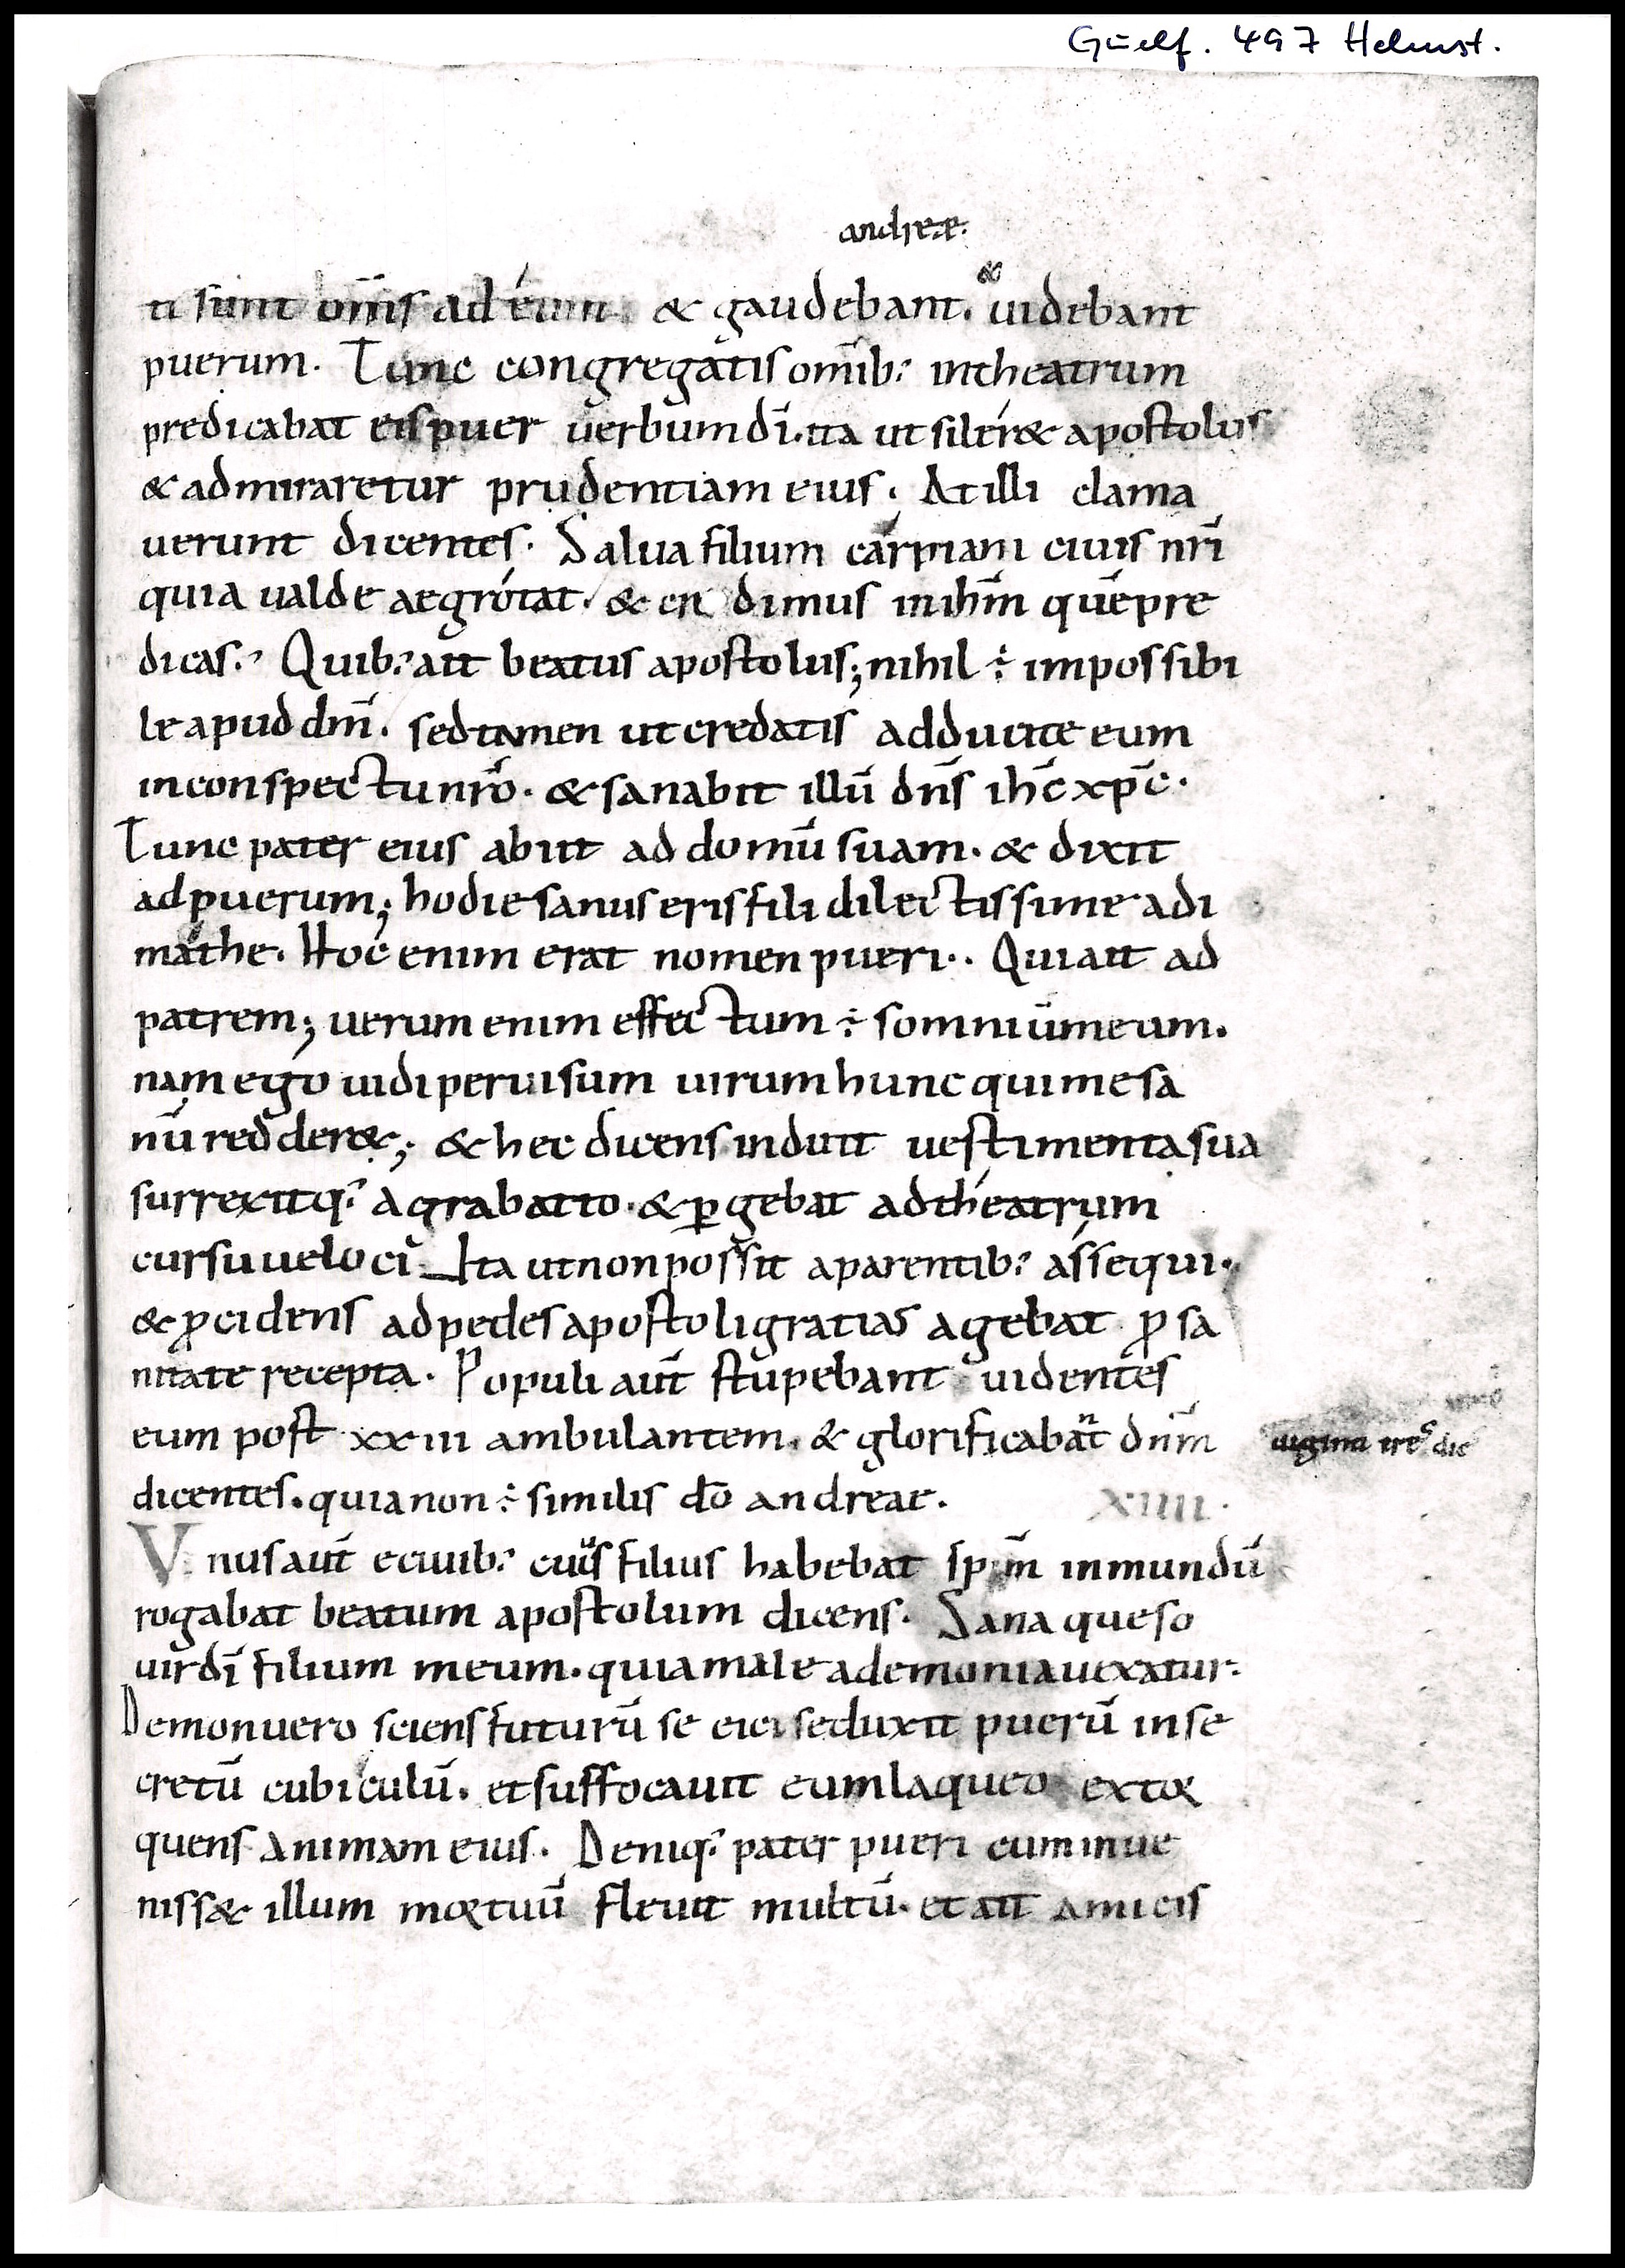 Guelf. 497 Helmst.
andreae.
ti sunt om̅s ad eum & gaudebant. & uidebant
puerum. Tunc congregatis omib; intheatrum
predicabat eis puer uerbum di̅. ita ut siler& apostolus
& admiraretur prudentiam eius. At illi clama
uerunt dicentes. Salua filium carpiani ciuis nr̅i
quia ualde aegrotat. & dimus inihm̅ que̅ pre
dicas. Quib; ait beatus apostolus; nihil ÷ impossibi
le apud dm̅. sed tamen ut credatis adducite eum
inconspectu nr̅o. & sanabit illu̅ dn̅s ihc̅ xpc̅.
Tunc pater eius abiit ad domu̅ suam. & dixit
ad puerum; hodie sanus eris fili dilectissime adi
mathe. Hoc enim erat nomen pueri. Qui ait ad
patrem; uerum enim effectum ÷ somniu̅ meum.
nam ego uidi peruisum uirum hunc qui me sa
nu̅ redder&; & hec dicens induit uestimenta sua
surrexitq; agrabatto. & p̲gebat ad theatrum
cursu ueloci Ita ut non possit aparentib; assequi.
& ꝓcidens ad pedes apostoli gratias agebat ꝓ sa
nitate recepta. Populi aut̅ stupebant uidentes
eum post xxiii ambulantem. & glorificabant dnm̅
uiginti tres
dicentes. quia non ÷ similis do̅ andreae.
XIIII.
Vnus aut̅ eciuib; cuius filius habebat spm̅ inmundu̅
rogabat beatum apostolum dicens. Sana queso
uir di̅ filium meum. quia male ademonia uexatur.
Demon uero sciens futuru̅ se eici seduxit pueru̅ in se
cretu̅ cubiculu̅. et suffocauit eum laqueo extor
quens animam eius. Deniq; pater pueri cum inue
niss& illum mortuu̅ fleuit multu̅. et ait amicis